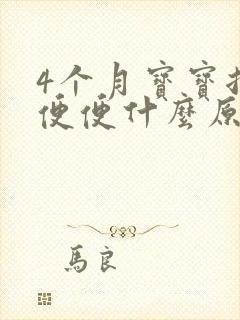 4个月寶寶
便便什麼原
馬良